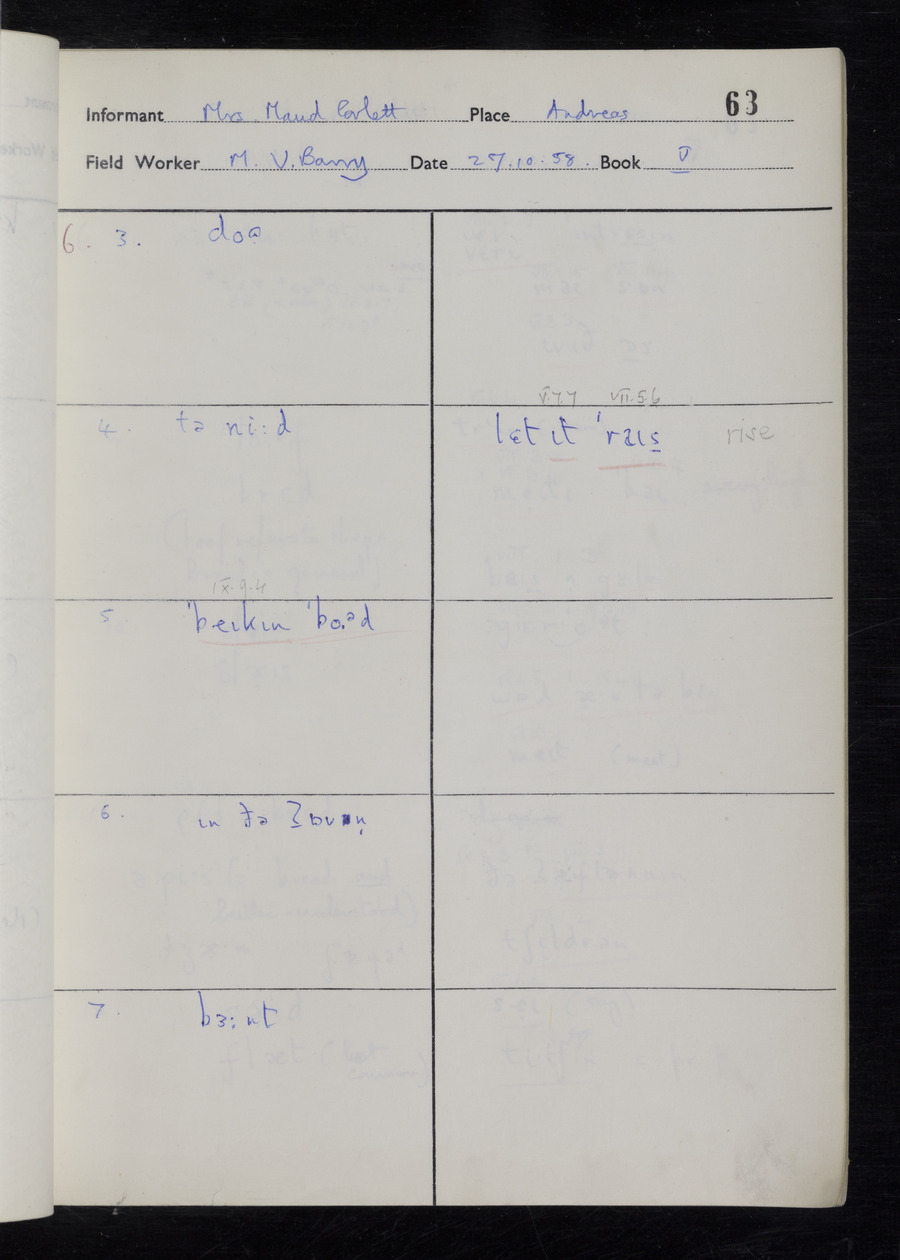 Informant Mrs. Maud Corlett Place Andreas 63
Field Worker M. V. Barry Date 27.10.58. Book V
6. 3. doə
V.7.7 VII.5.6
4. tə ni:d lɛt ɩt ˈraɩs rise
IX.9.4
5. ˈbeɩkɩn ˈbo.əd
6. ɩn ðə
7. bɜ:nt